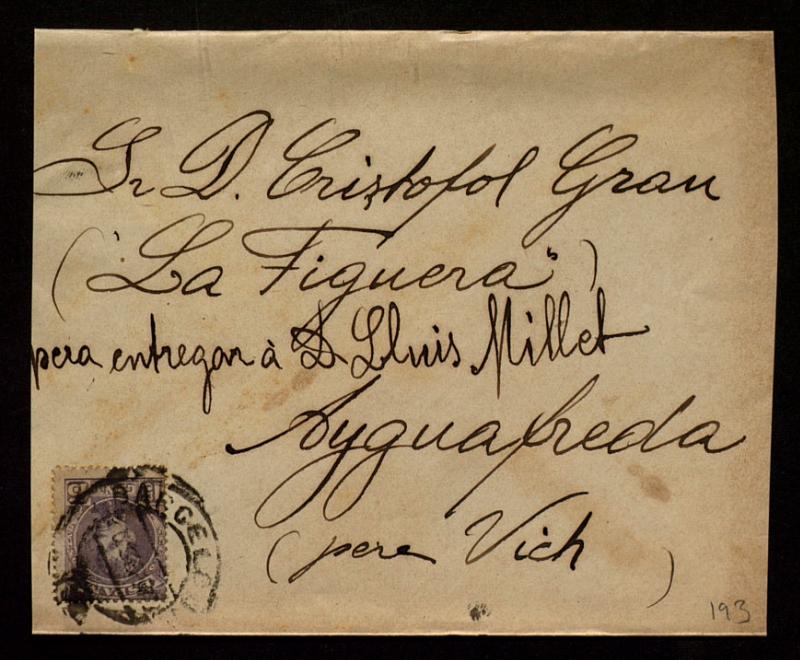 Sr D. Cristofol Grau
("La Figuera")
pera entregar à D. Lluis Millet
Ayguafreda
(pera Vich)
BARCELO
193